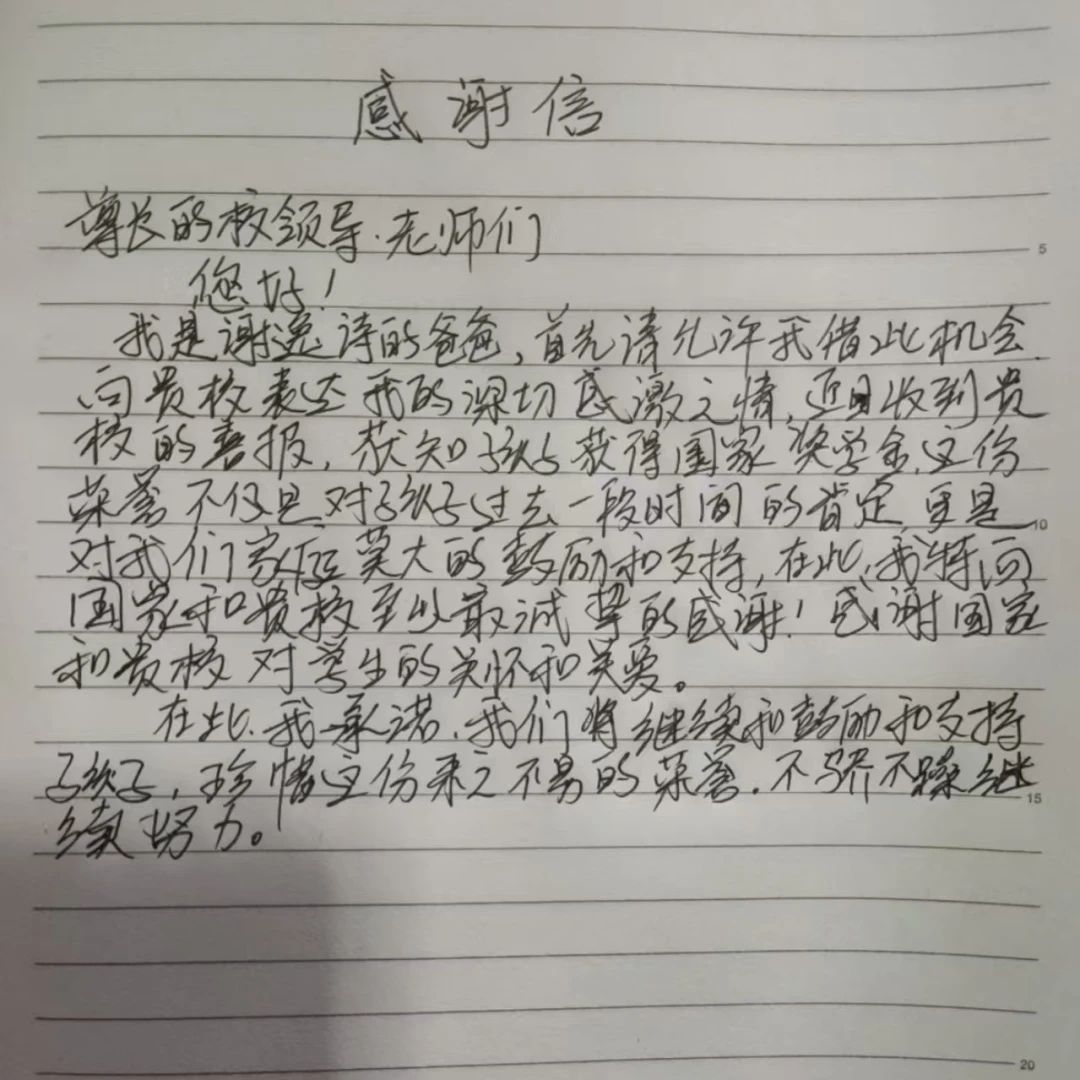 感谢信
尊长的校领导、老师们
您好！
我是谢逸诗的爸爸，首先请允许我借此机会
向贵校表达我的深切感激之情，近日收到贵
校的喜报，获知孩子获得国家奖学金，这份
荣誉不仅是对孩子过去一段时间的肯定，更是 10
对我们家庭莫大的鼓励和支持，在此，我特向
国家和贵校至以最诚挚的感谢！感谢国家
和贵校对学生的关怀和关爱。
在此，我承诺，我们将继续和鼓励和支持
孩子，珍惜这份来之不易的荣誉，不骄不躁继 15
续努力。
5
20